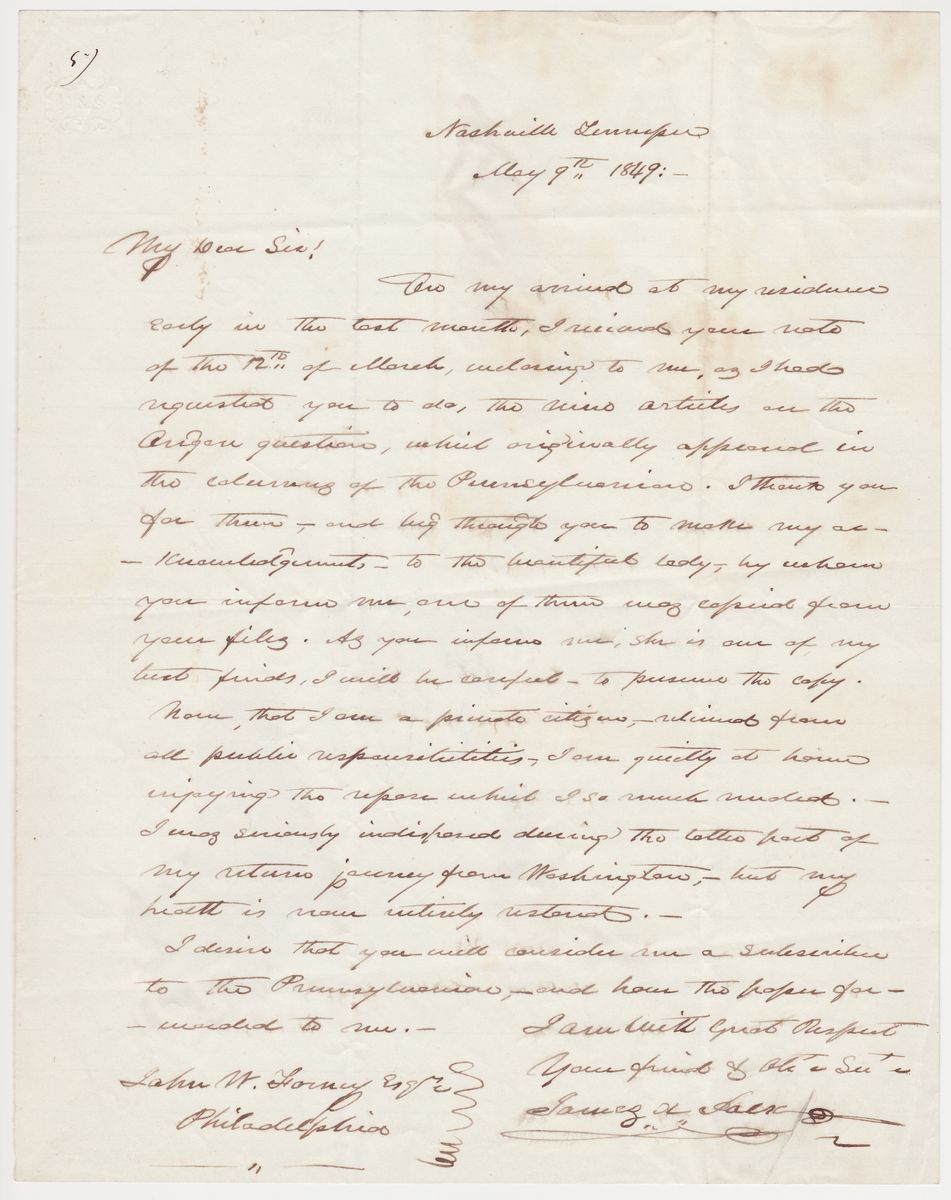 5)
Nashville Tennessee
May 9th 1849:-
My Dear Sir!
On my arrival at my residence
early in the last month, I received your note
of the 12th of March, inclosing to me, as I had
requested you to do, the nine articles on the
Oregon question, which originally appeared in
the columns of the Pennsylvanian. I thank you
for them,- and beg through you to make my ac-
-knowledgments- to the beautiful lady-, by whom
you inform me, one of them was copied from
your files. As you inform me, she is one of my
best friends, I will be careful- to preserve the copy.
Now, that I am a private citizen,- retired from
all public responsibilities-, I am quietly at home
enjoying the repose which I so much needed.-
I was seriously indisposed during the latter part of
my return journey from Washington,- but my
health is now entirely restored.-
I desire that you will consider me a subscriber
to the Pennsylvanian,- and have the paper for-
-warded to me.-
I am With Great Respect
Your friend & Obt Svt
James K Polk
John W. Forney Esqr
Philadelphia
"